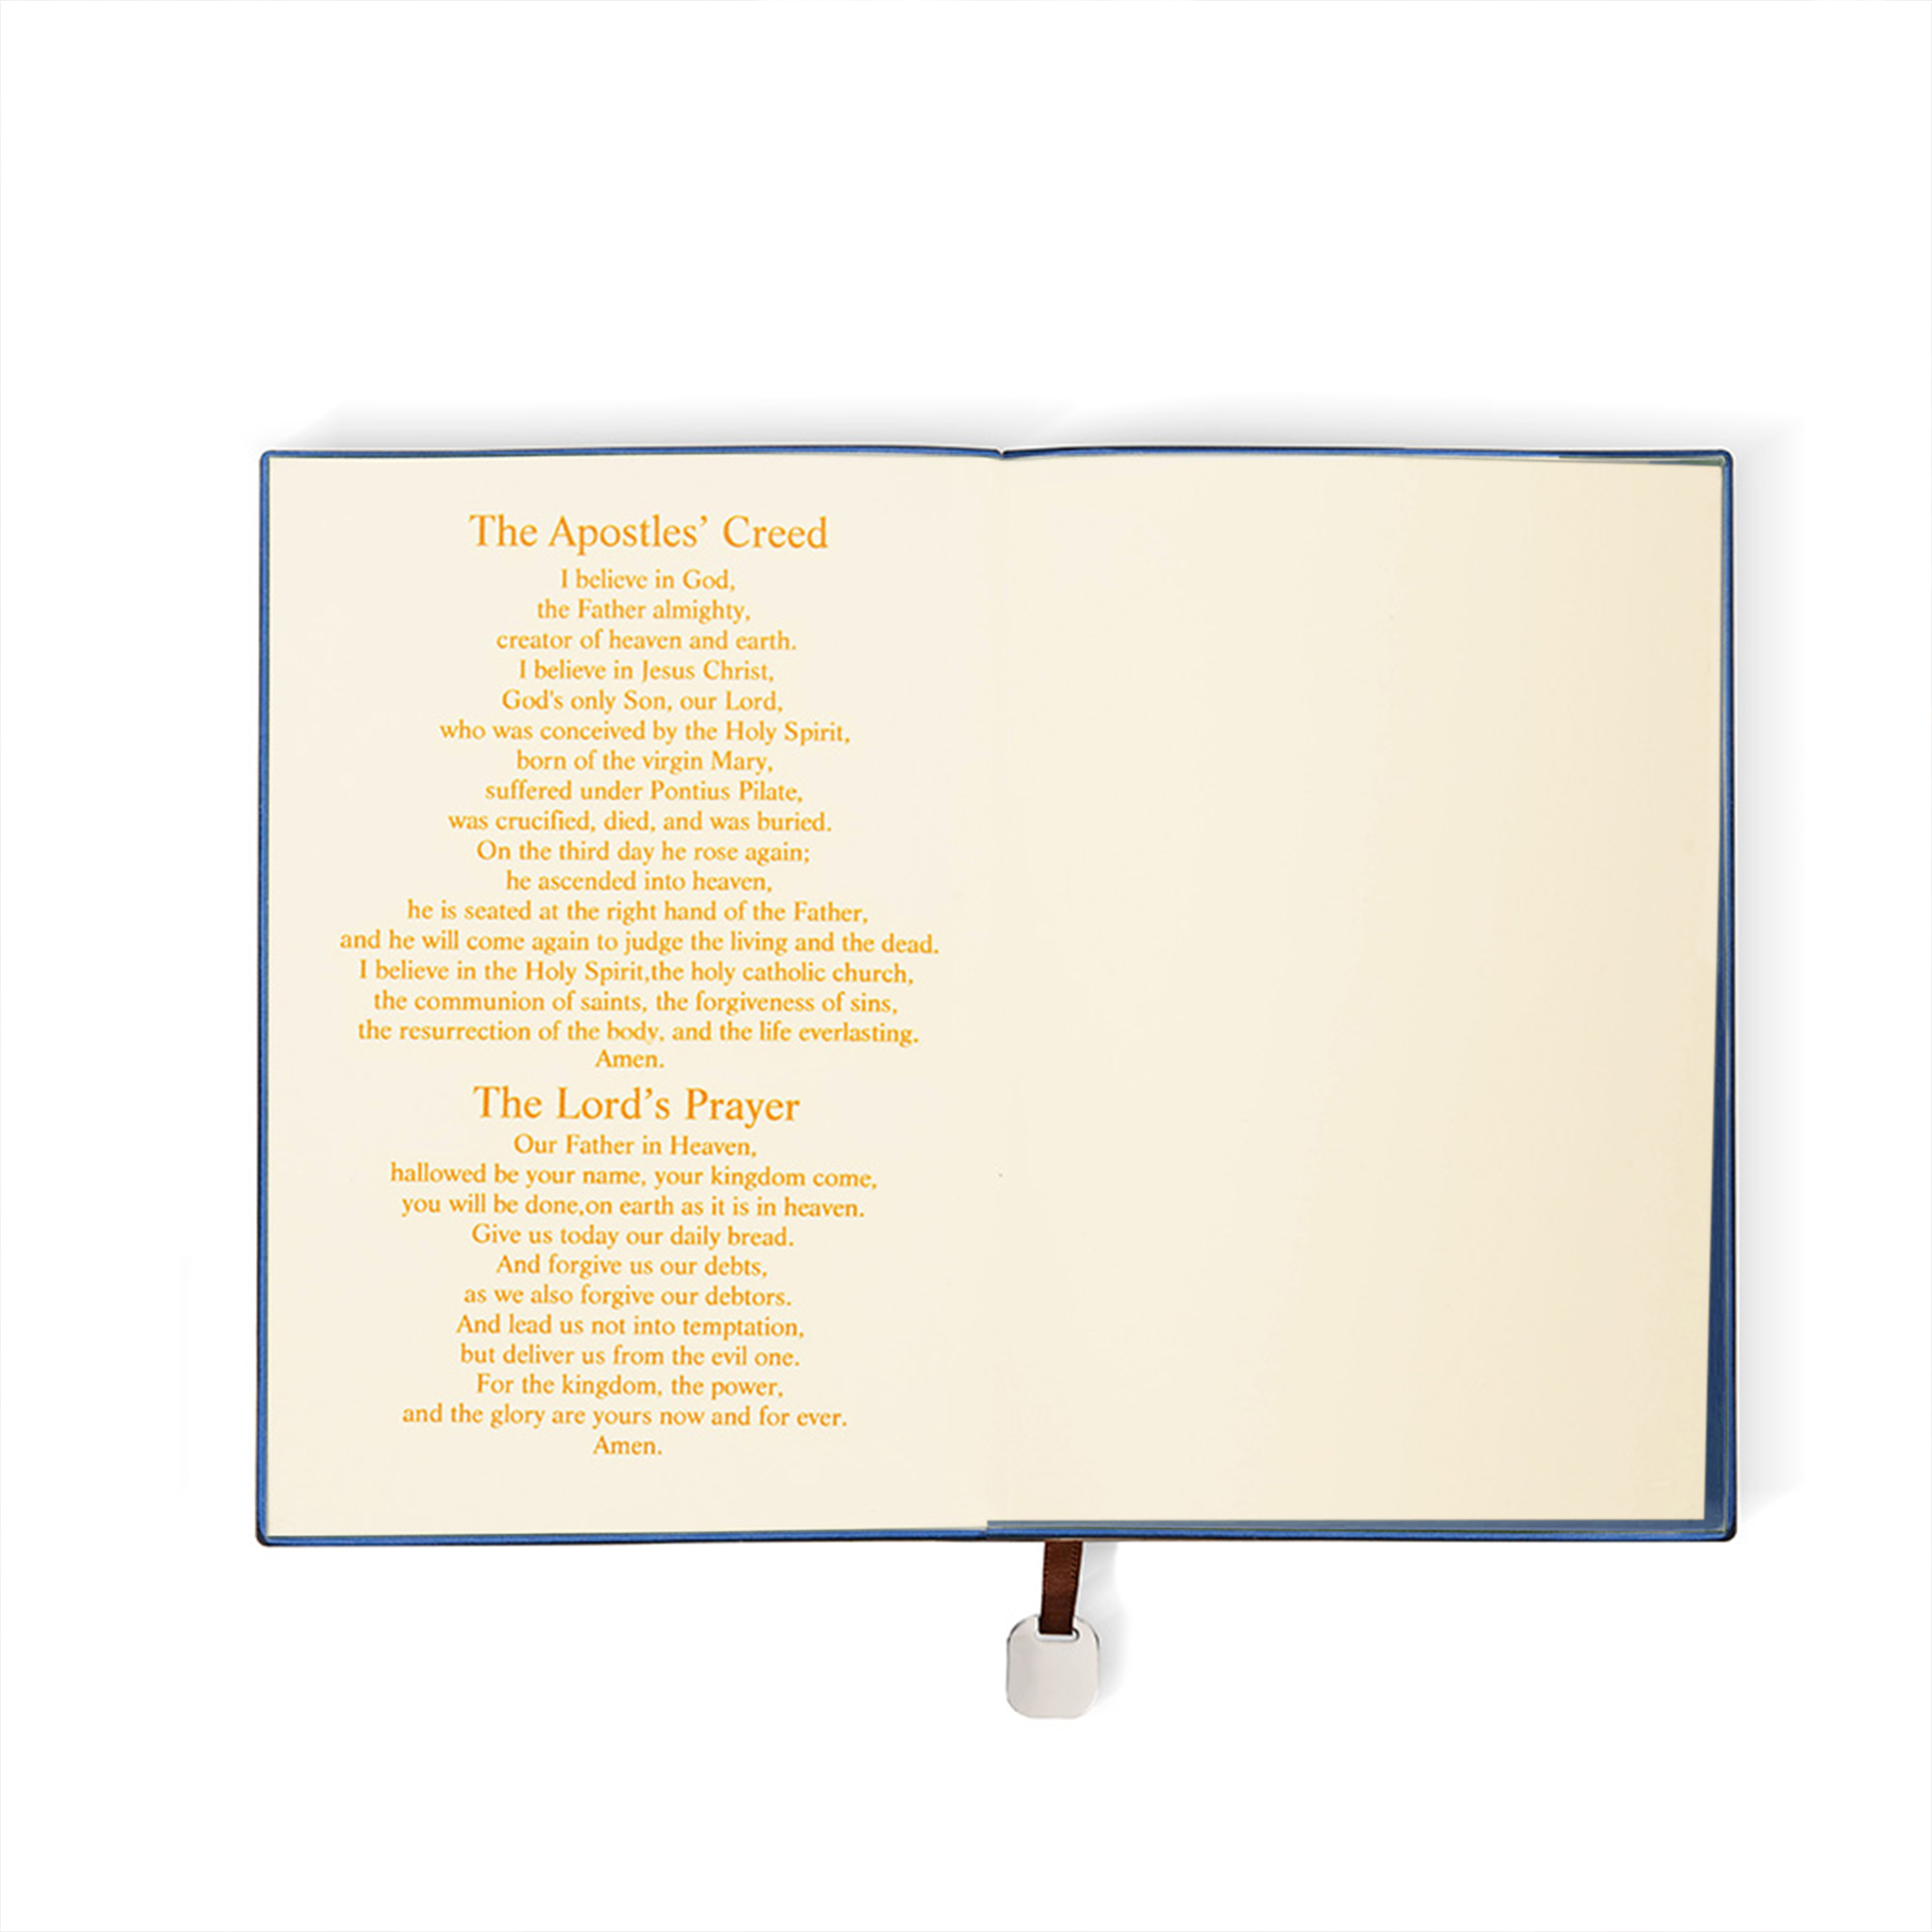 The Apostles’ Creed
I believe in God,
the Father almighty,
creator of heaven and earth.
I believe in Jesus Christ,
God's only Son, our Lord,
who was conceived by the Holy Spirit,
born of the virgin Mary,
suffered under Pontius Pilate,
was crucified, died, and was buried.
On the third day he rose again;
he ascended into heaven,
he is seated at the right hand of the Father,
and he will come again to judge the living and the dead.
I believe in the Holy Spirit,the holy catholic church,
the communion of saints, the forgiveness of sins,
the resurrection of the body, and the life everlasting.
Amen.
The Lord’s Prayer
Our Father in Heaven,
hallowed be your name, your kingdom come,
you will be done,on earth as it is in heaven.
Give us today our daily bread.
And forgive us our debts,
as we also forgive our debtors.
And lead us not into temptation,
but deliver us from the evil one.
For the kingdom, the power,
and the glory are yours now and for ever.
Amen.